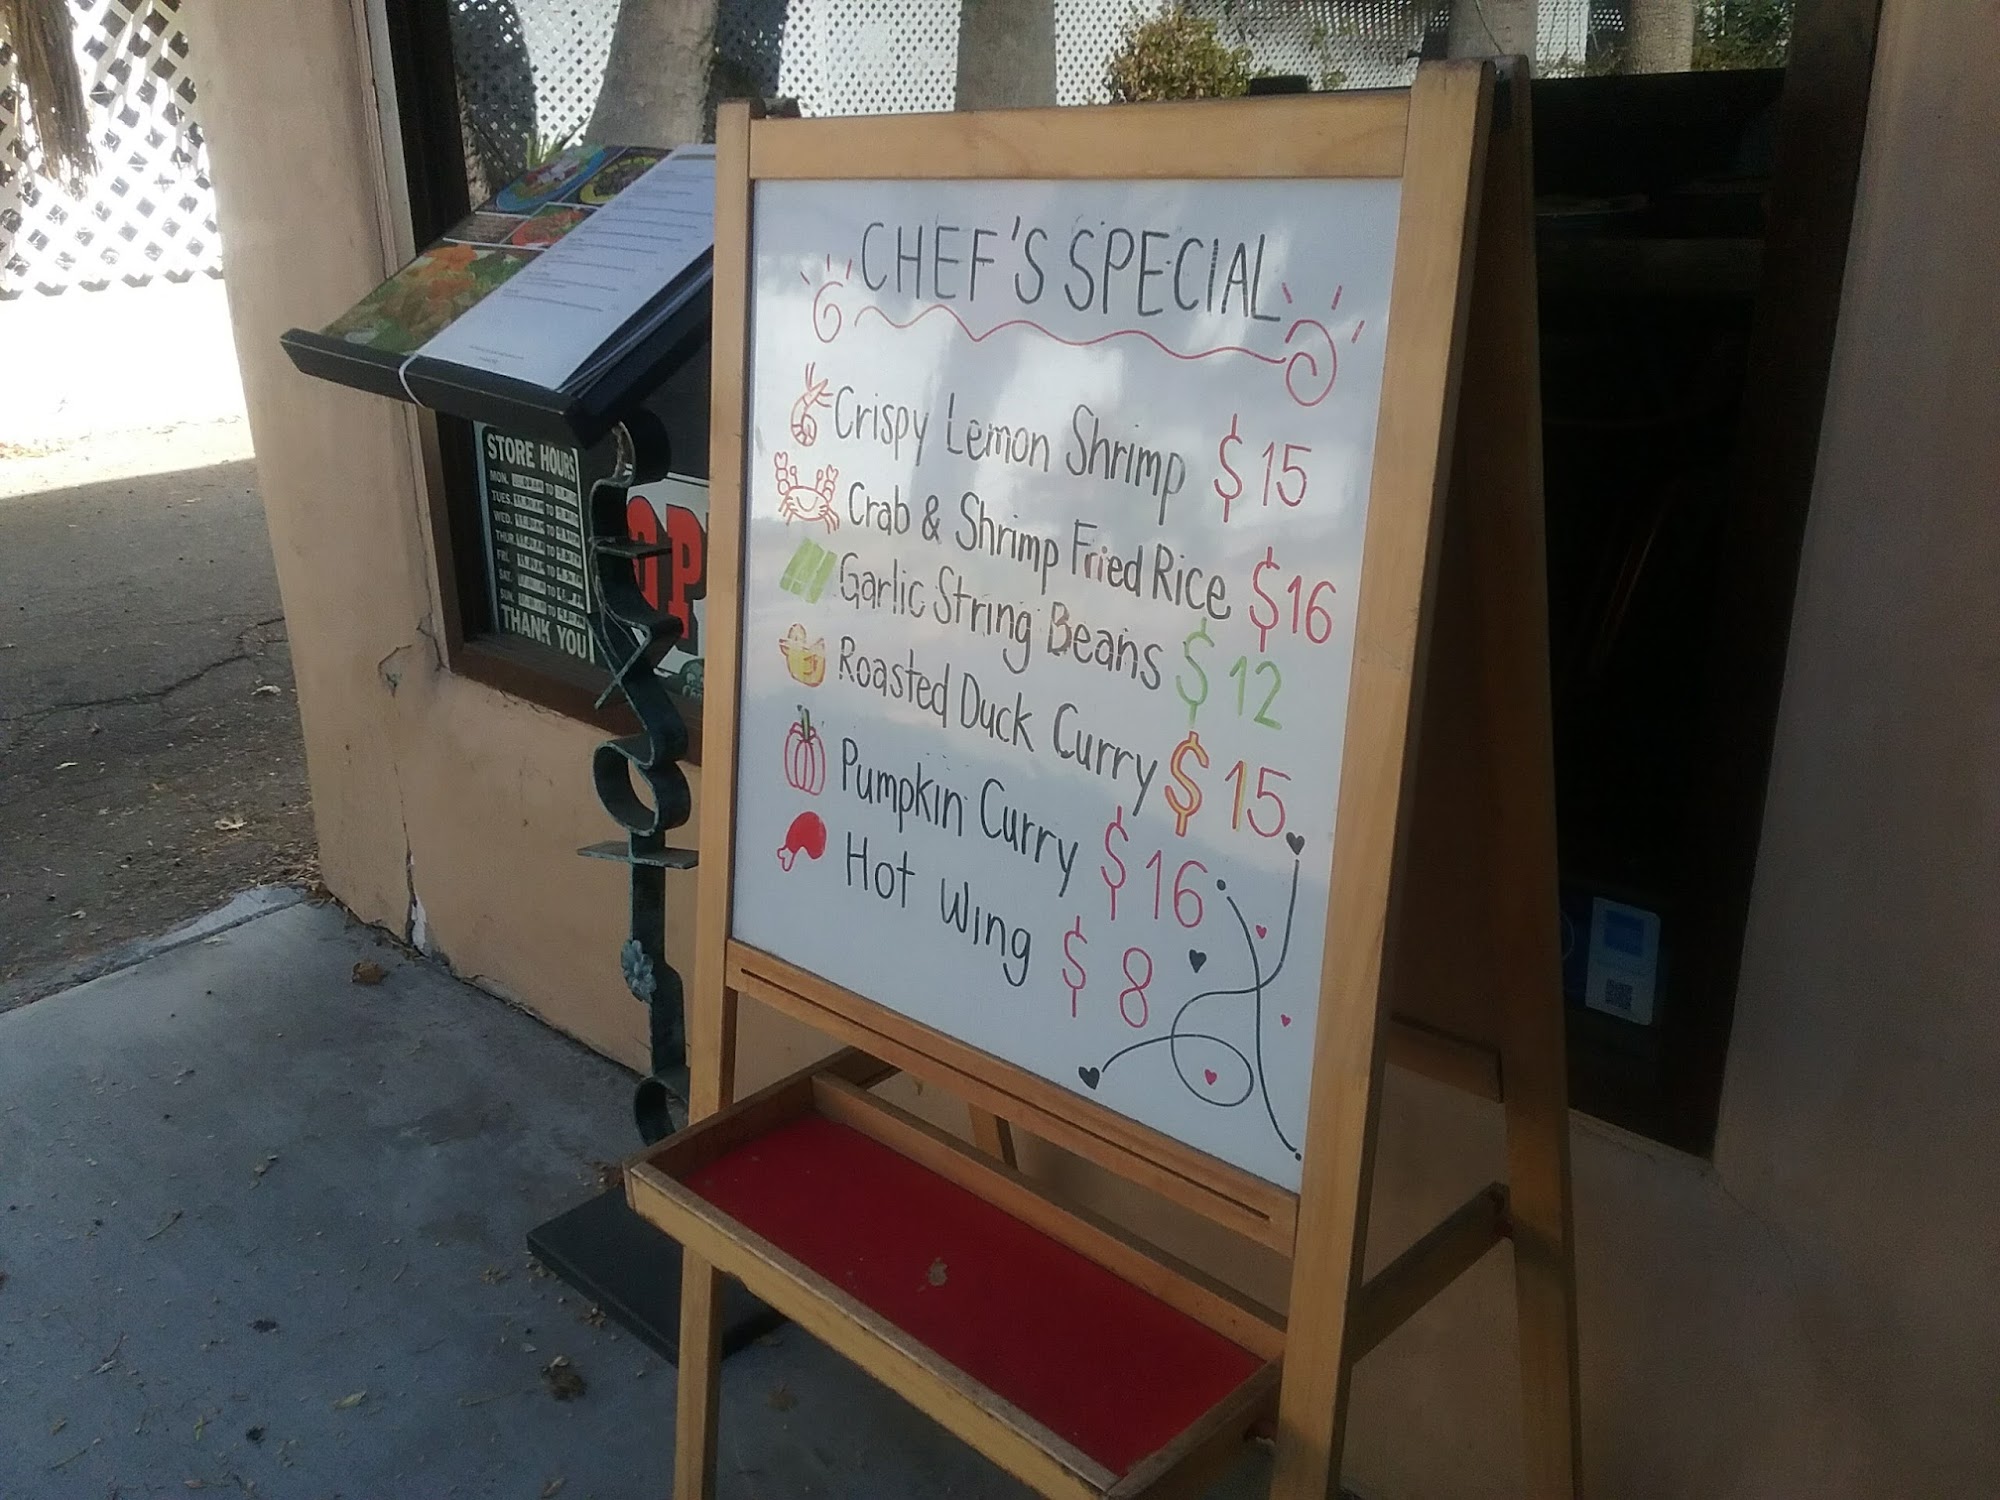 CHEF'S SPECIAL
Crispy Lemon Shrimp $15
Crab & Shrimp Fried Rice $16
Garlic String Beans $12
Roasted Duck Curry $15
Pumpkin Curry $16
Hot Wing $8
STORE HOURS
MON. TO
TUES. TO
WED. TO
THUR. TO
FRI. TO
SAT. TO
SUN. TO
THANK YOU